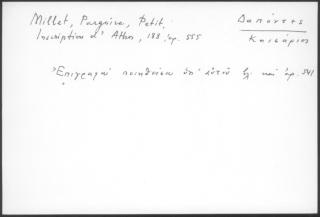 Millet, Pargoire, Petit,
Inscriptions d' Athos, 188 ἀρ. 555
Δαπόντες
Καισάριος
Ἐπιγραφαὶ ποιηθεῖσαι ὑπ' αὐτοῦ βλ. καὶ ἀρ. 541